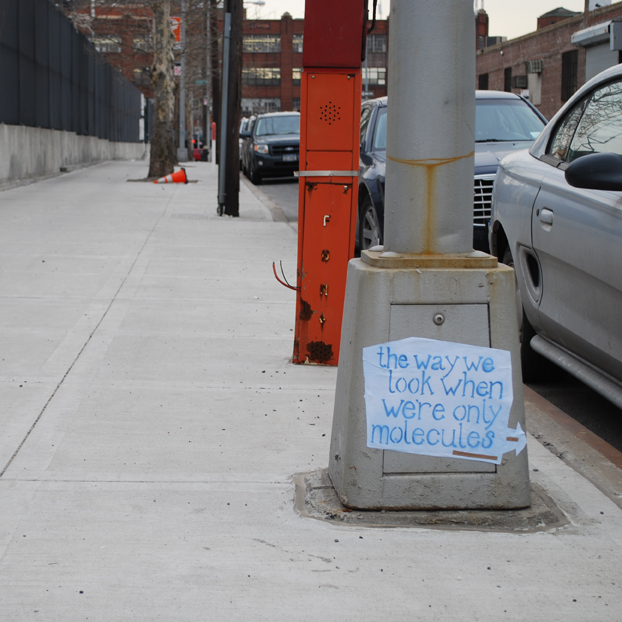 the way we
look when
we're only
molecules